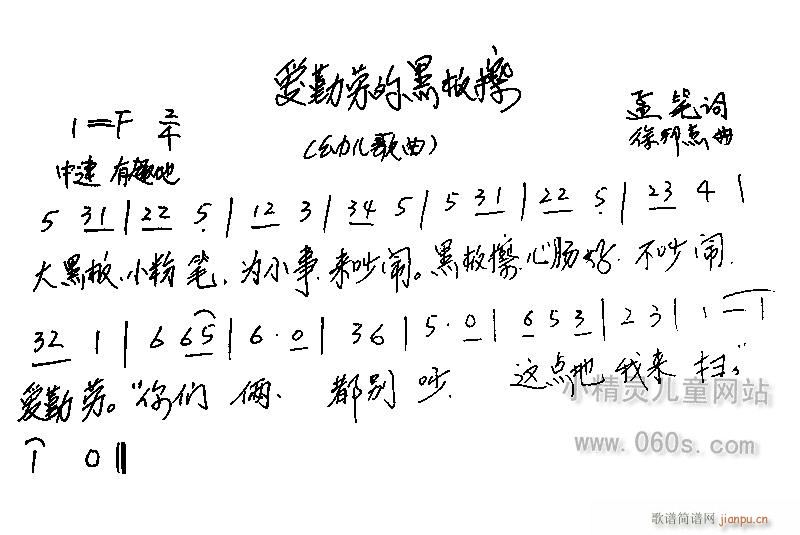 爱勤劳的黑板擦
1=F 2/4
(幼儿歌曲)
孟 笔词
徐邦杰曲
中速 有趣地
5 31 | 22 5 | 12 3 | 34 5 | 5 31 | 22 5 | 23 4 |
大黑板.小粉笔,为小事.来吵闹。黑板擦.心肠好.不吵闹.
32 1 | 6 65 | 6·0 | 36 | 5·0 | 6 5 3 | 2 3 | 1 — |
爱勤劳。"你们俩.都别吵.这点地我来扫。"
1 0 ‖
小精灵儿童网站
www.060s.com
歌谱简谱网
jianpu.cn